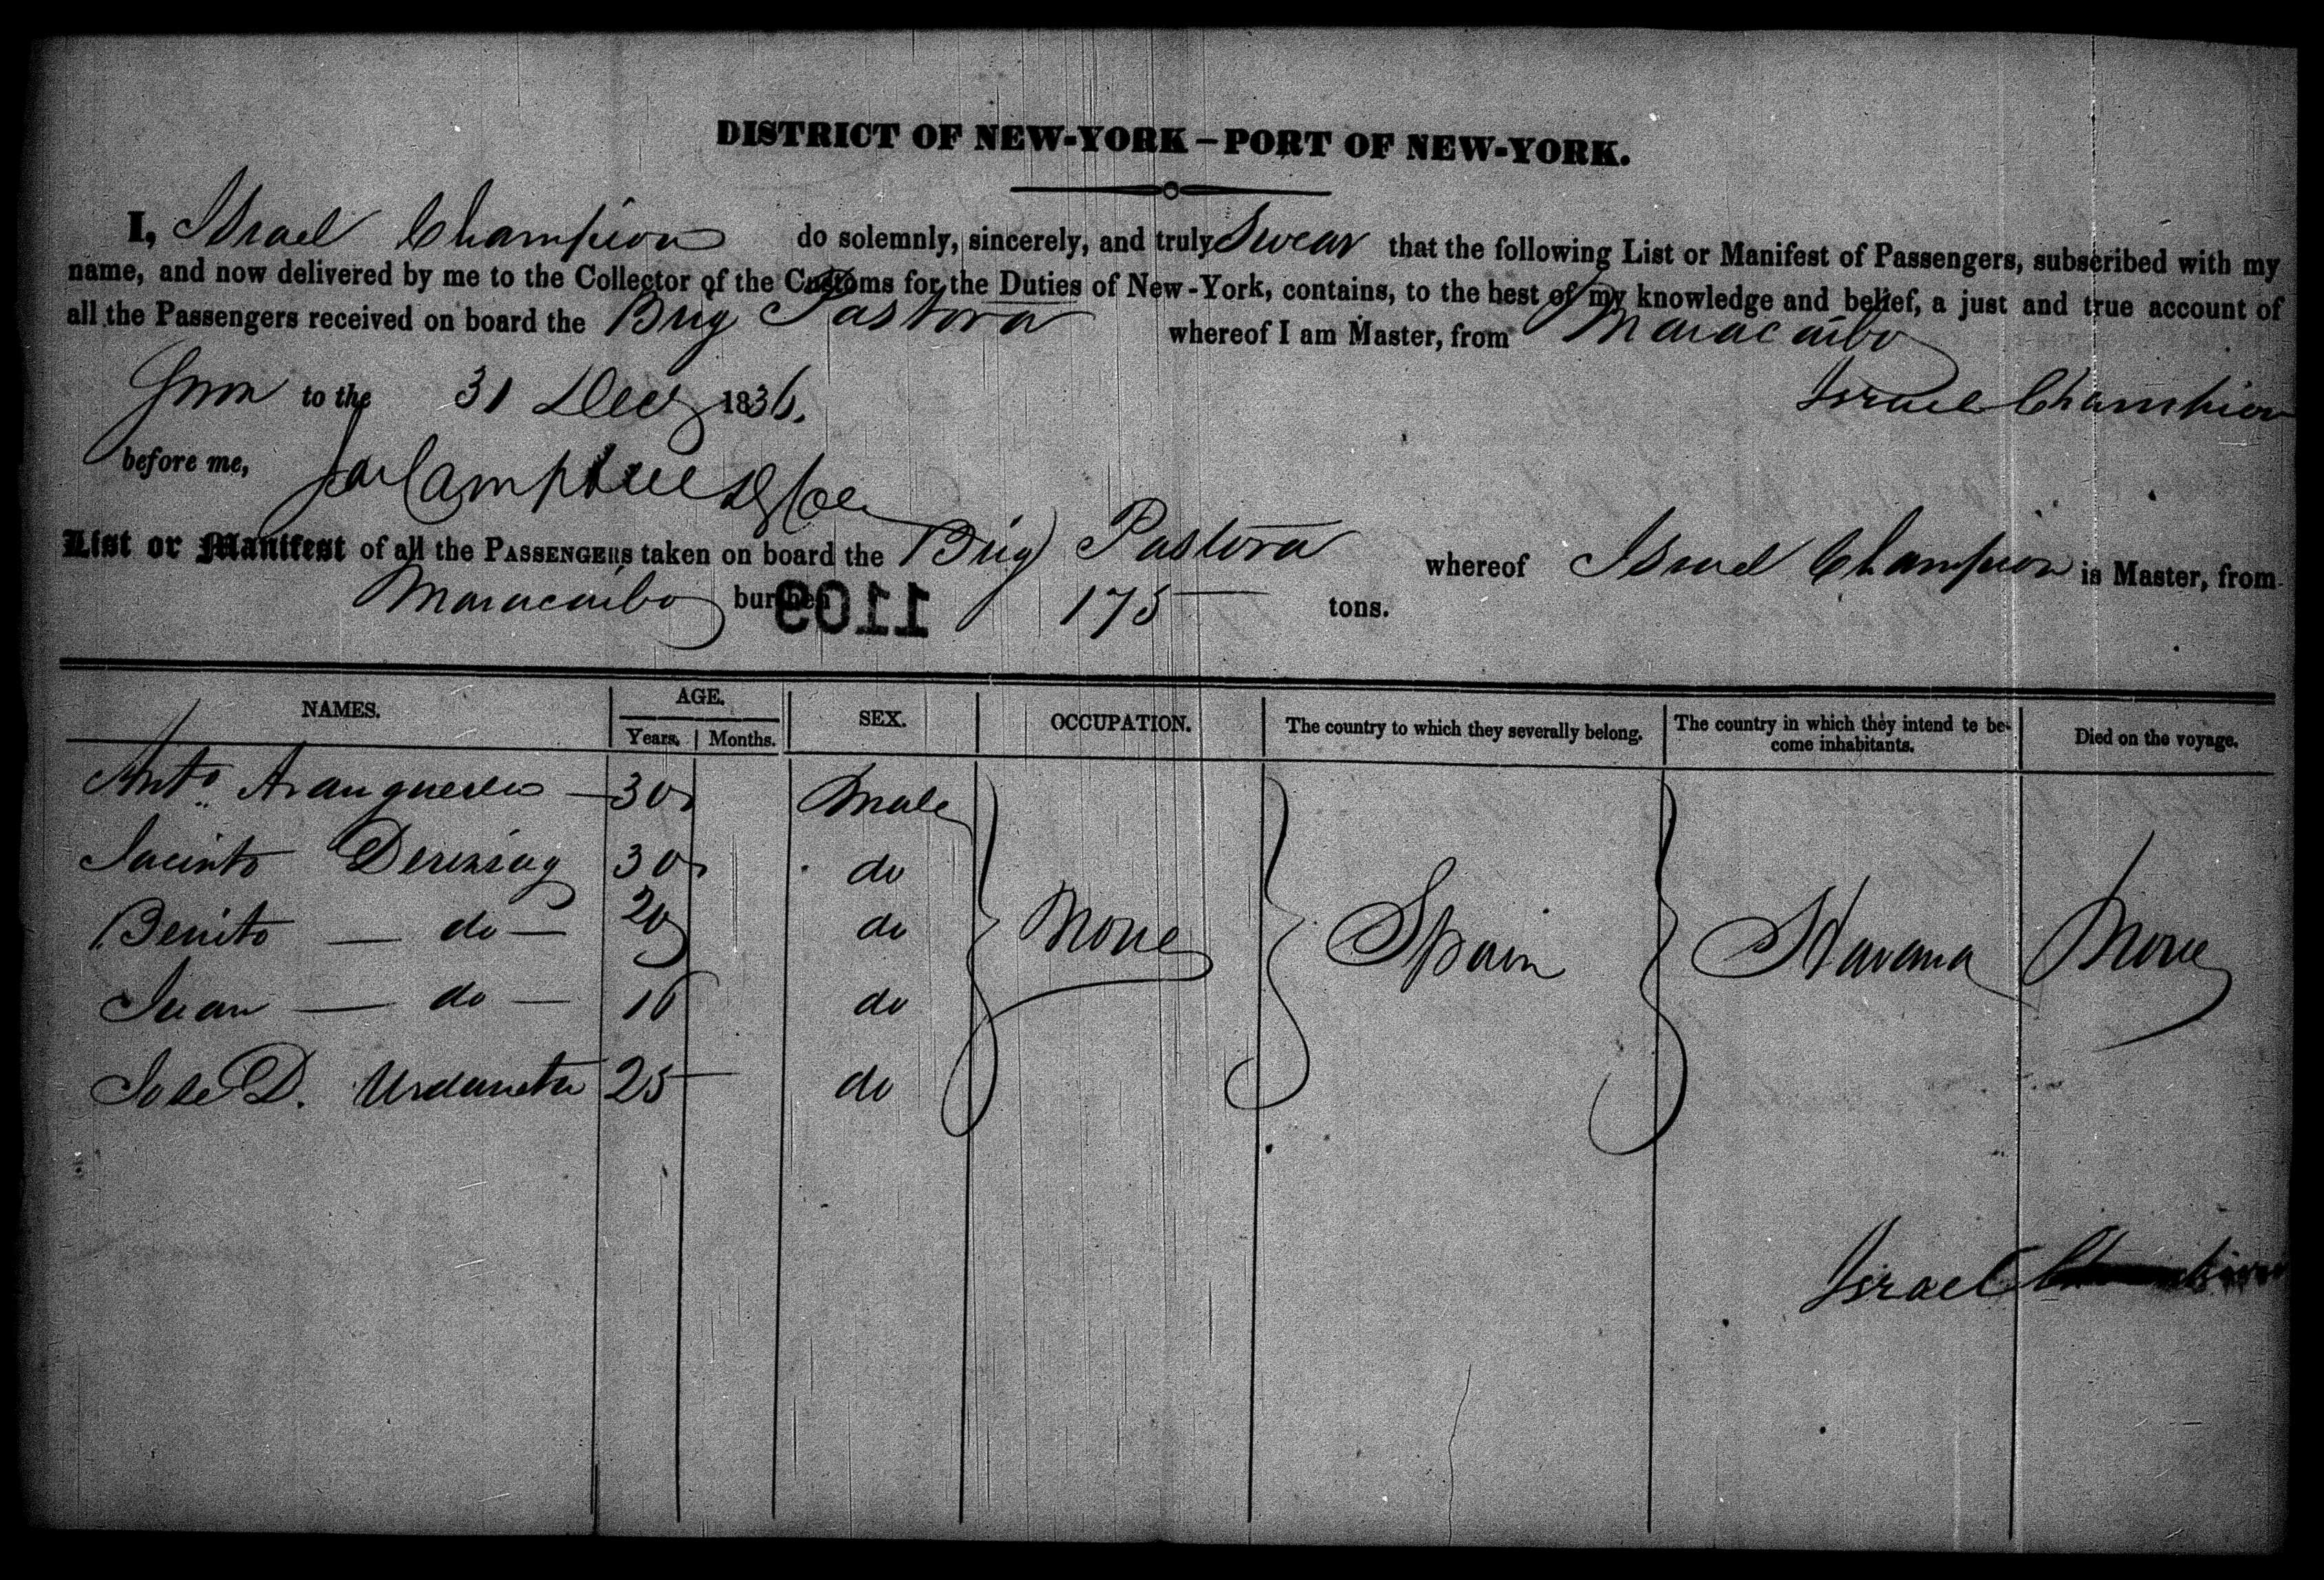 DISTRICT OF NEW-YORK – PORT OF NEW-YORK.
I, Israel Champion do solemnly, sincerely, and truly Swear that the following List or Manifest of Passengers, subscribed with my
name, and now delivered by me to the Collector of the Customs for the Duties of New-York, contains, to the best of my knowledge and belief, a just and true account of
all the Passengers received on board the Brig Pastora whereof I am Master, from Maracaibo
to the 31 Dec 1836. Israel Champion
before me, Campbell
List or Manifest of all the PASSENGERS taken on board the Brig Pastora whereof Israel Champion is Master, from
Maracaibo burthen 175 tons.
1109
NAMES. AGE. SEX. OCCUPATION. The country to which they severally belong. The country in which they intend to be-
come inhabitants. Died on the voyage.
Years. Months.
Anto. 30 Male
Jacinto 30 do
Benito — do — 20 do
None Spain Havana None
Juan — do — do
Jose D. Urdaneta 25 do
Israel Champion